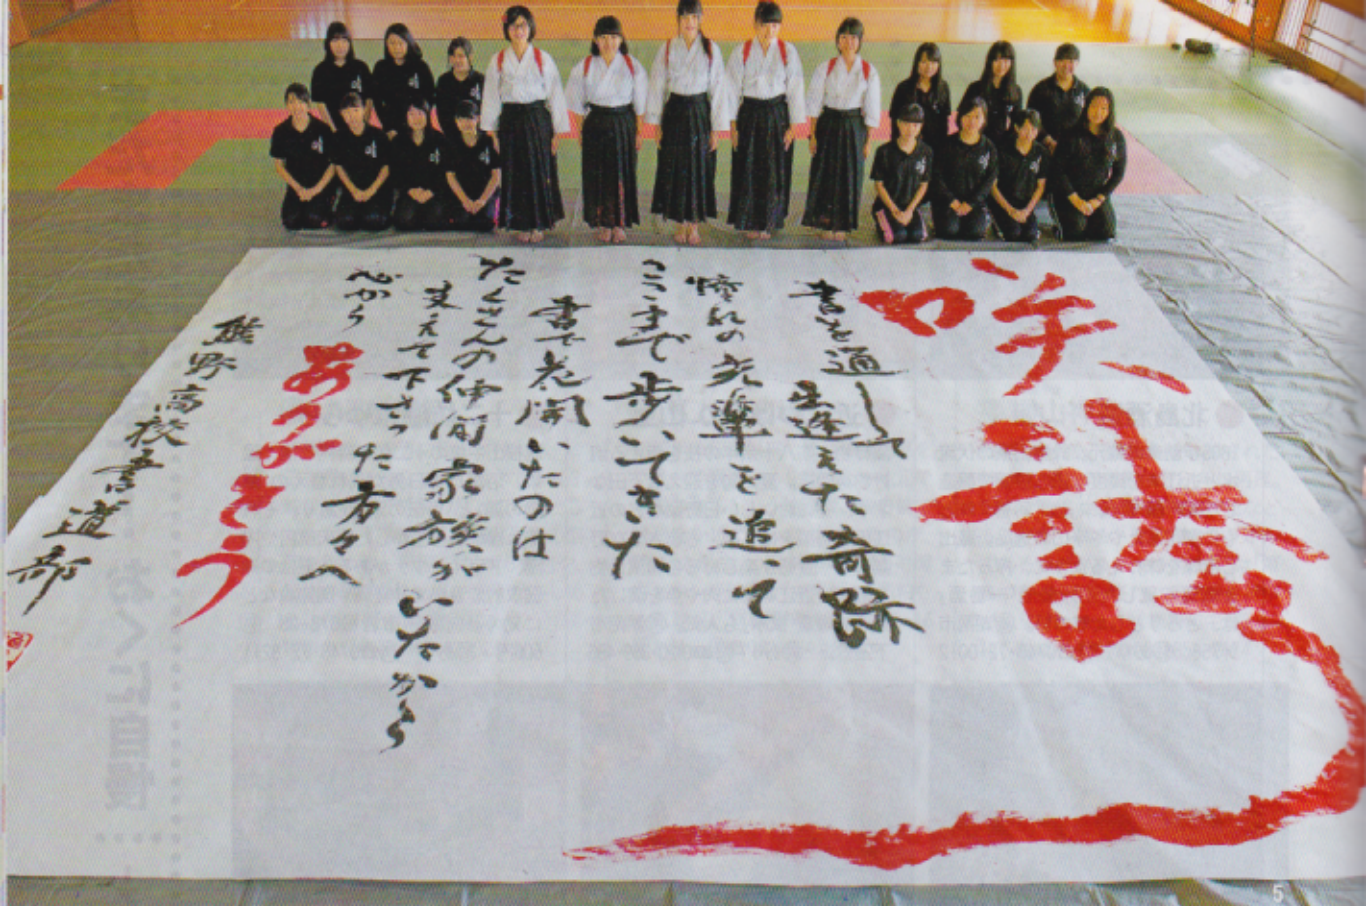 咲誇
書を通して
出逢えた奇跡
憧れの先輩を追って
ここまで歩いてきた
書で花開いたのは
たくさんの仲間家族がいたから
支えて下さった方々へ
心から
ありがとう
熊野高校書道部
5